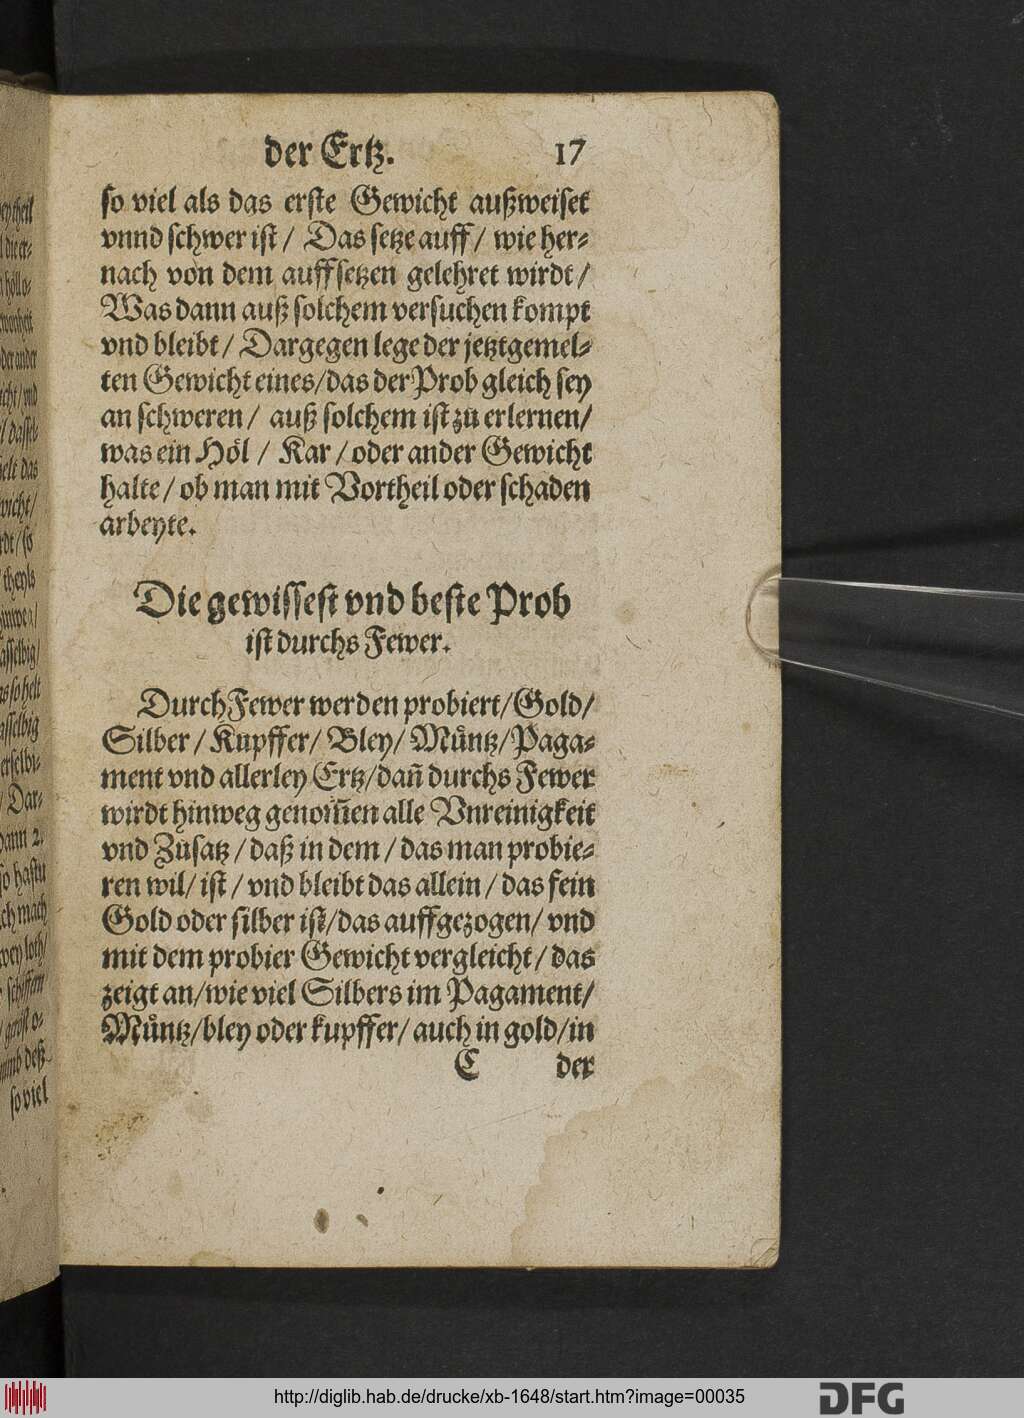 der Ertz. 17
so viel als das erste Gewicht außweiset
vnnd schwer ist / Das setze auff / wie her⸗
nach von dem auffsetzen gelehret wirdt /
Was dann auß solchem versuchen kompt
vnd bleibt / Dargegen lege der jetztgemel⸗
ten Gewicht eines / das der Prob gleich sey
an schweren / auß solchem ist zů erlernen /
was ein Höl / Kar / oder ander Gewicht
halte / ob man mit Vortheil oder schaden
arbeyte.
Die gewissest vnd beste Prob
ist durchs Fewer.
Durch Fewer werden probiert / Gold /
Silber / Kupffer / Bley / Müntz / Paga⸗
ment vnd allerley Ertz / dañ durchs Fewer
wirdt hinweg genom̃en alle Vnreinigkeit
vnd Zůsatz / daß in dem / das man probie⸗
ren wil / ist / vnd bleibt das allein / das fein
Gold oder silber ist / das auffgezogen / vnd
mit dem probier Gewicht vergleicht / das
zeigt an / wie viel Silbers im Pagament /
Müntz / bley oder kupffer / auch in gold / in
C der
so viel
http://diglib.hab.de/drucke/xb-1648/start.htm?image=00035
DFG